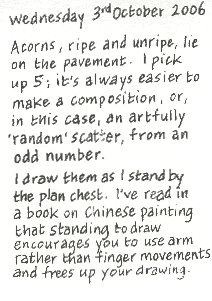 Wednesday 3rd October 2006
Acorns, ripe and unripe, lie
on the pavement. I pick
up 5; it's always easier to
make a composition, or,
in this case, an artfully
'random' scatter, from an
odd number.
I draw them as I stand by
the plan chest. I've read in
a book on Chinese painting
that standing to draw
encourages you to use arm
rather than finger movements
and frees up your drawing.